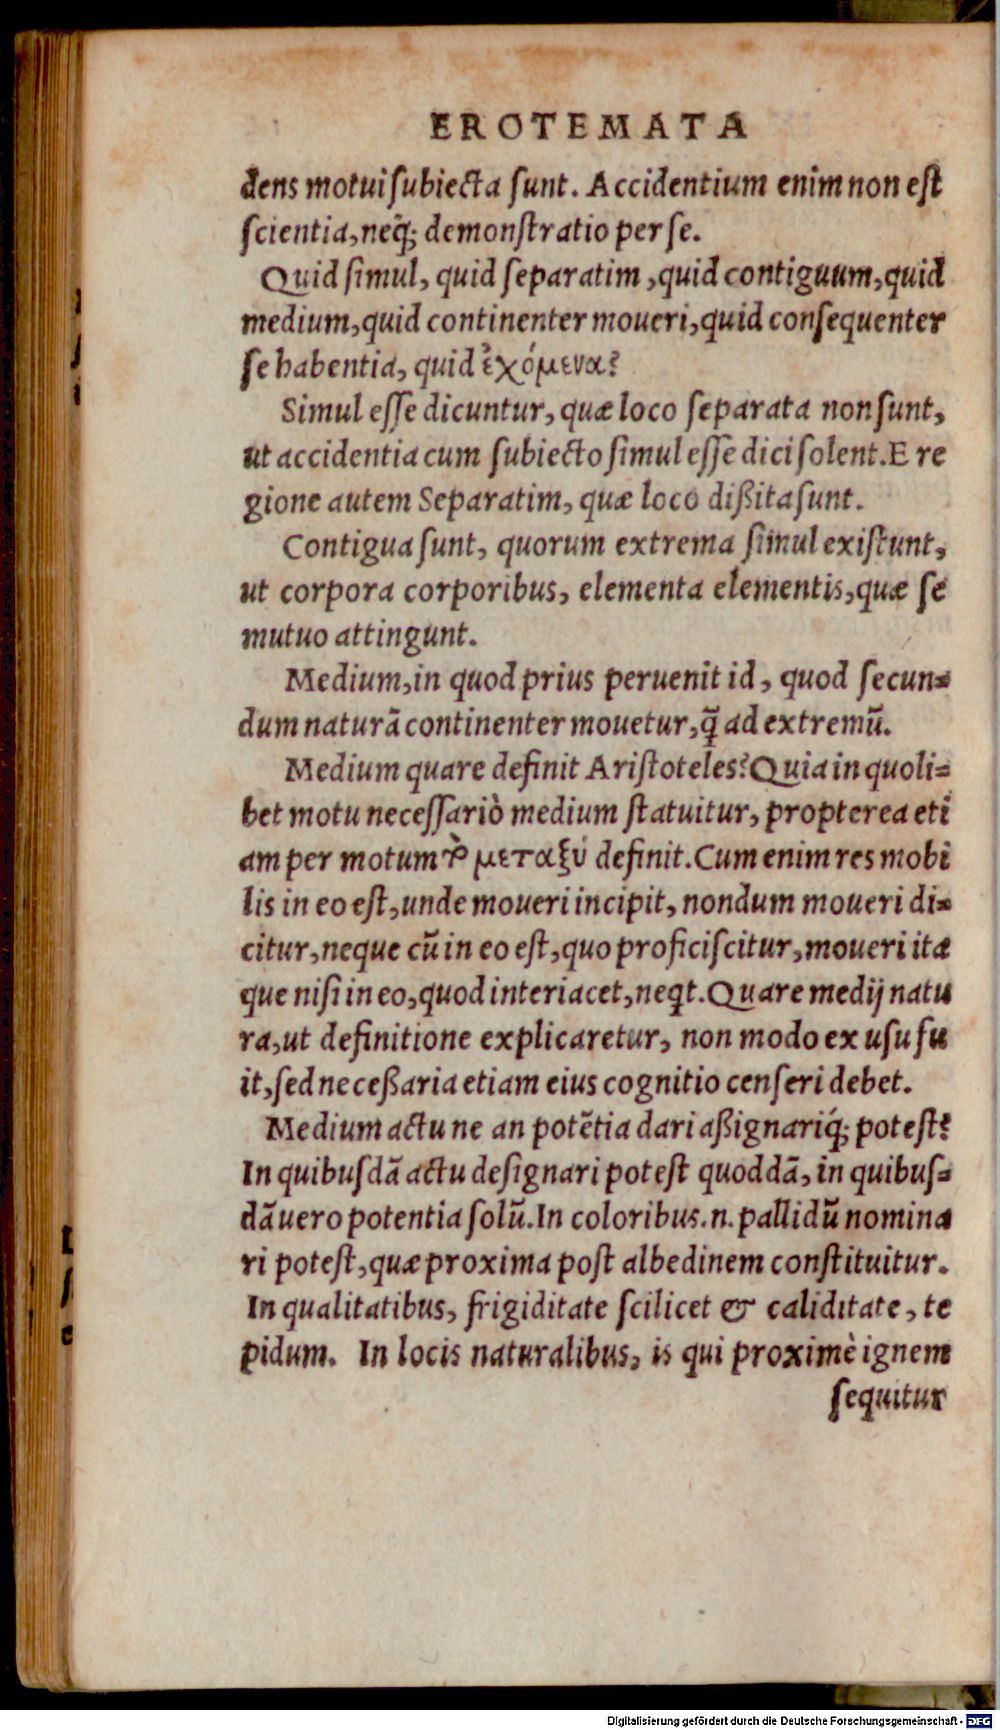 EROTEMATA
dens motui ſubiecta ſunt. Accidentium enim non eſt
ſcientia, neq́; demonſtratio per ſe.
Quid ſimul, quid ſeparatim, quid contiguum, quid
medium, quid continenter moueri, quid conſequenter
ſe habentia, quid ἐχόμενα?
Simul eſſe dicuntur, quæ loco ſeparata non ſunt,
ut accidentia cum ſubiecto ſimul eſſe dici ſolent. E re
gione autem Separatim, quæ loco dißita ſunt.
Contigua ſunt, quorum extrema ſimul exiſtunt,
ut corpora corporibus, elementa elementis, quæ ſe
mutuo attingunt.
Medium, in quod prius peruenit id, quod ſecun⸗
dum naturā continenter mouetur, q̄ ad extremū.
Medium quare definit Ariſtoteles? Quia in quoli⸗
bet motu neceſſariò medium ſtatuitur, propterea eti
am per motum τὸ μεταξύ definit. Cum enim res mobi
lis in eo eſt, unde moueri incipit, nondum moueri di⸗
citur, neque cū in eo eſt, quo proficiſcitur, moueri itæ
que niſi in eo, quod interiacet, neq̃t. Quare medij natu
ra, ut definitione explicaretur, non modo ex uſu fu
it, ſed neceßaria etiam eius cognitio cenſeri debet.
Medium actu ne an potētia dari aßignariq́; poteſt?
In quibuſdā actu deſignari poteſt quoddā, in quibuſ⸗
dā uero potentia ſolū. In coloribus .n. pallidū nomina
ri poteſt, quæ proxima poſt albedinem conſtituitur.
In qualitatibus, frigiditate ſcilicet & caliditate, te
pidum. In locis naturalibus, is qui proximè ignem
ſequitur
Digitalisierung gefördert durch die Deutsche Forschungsgemeinschaft - DFG